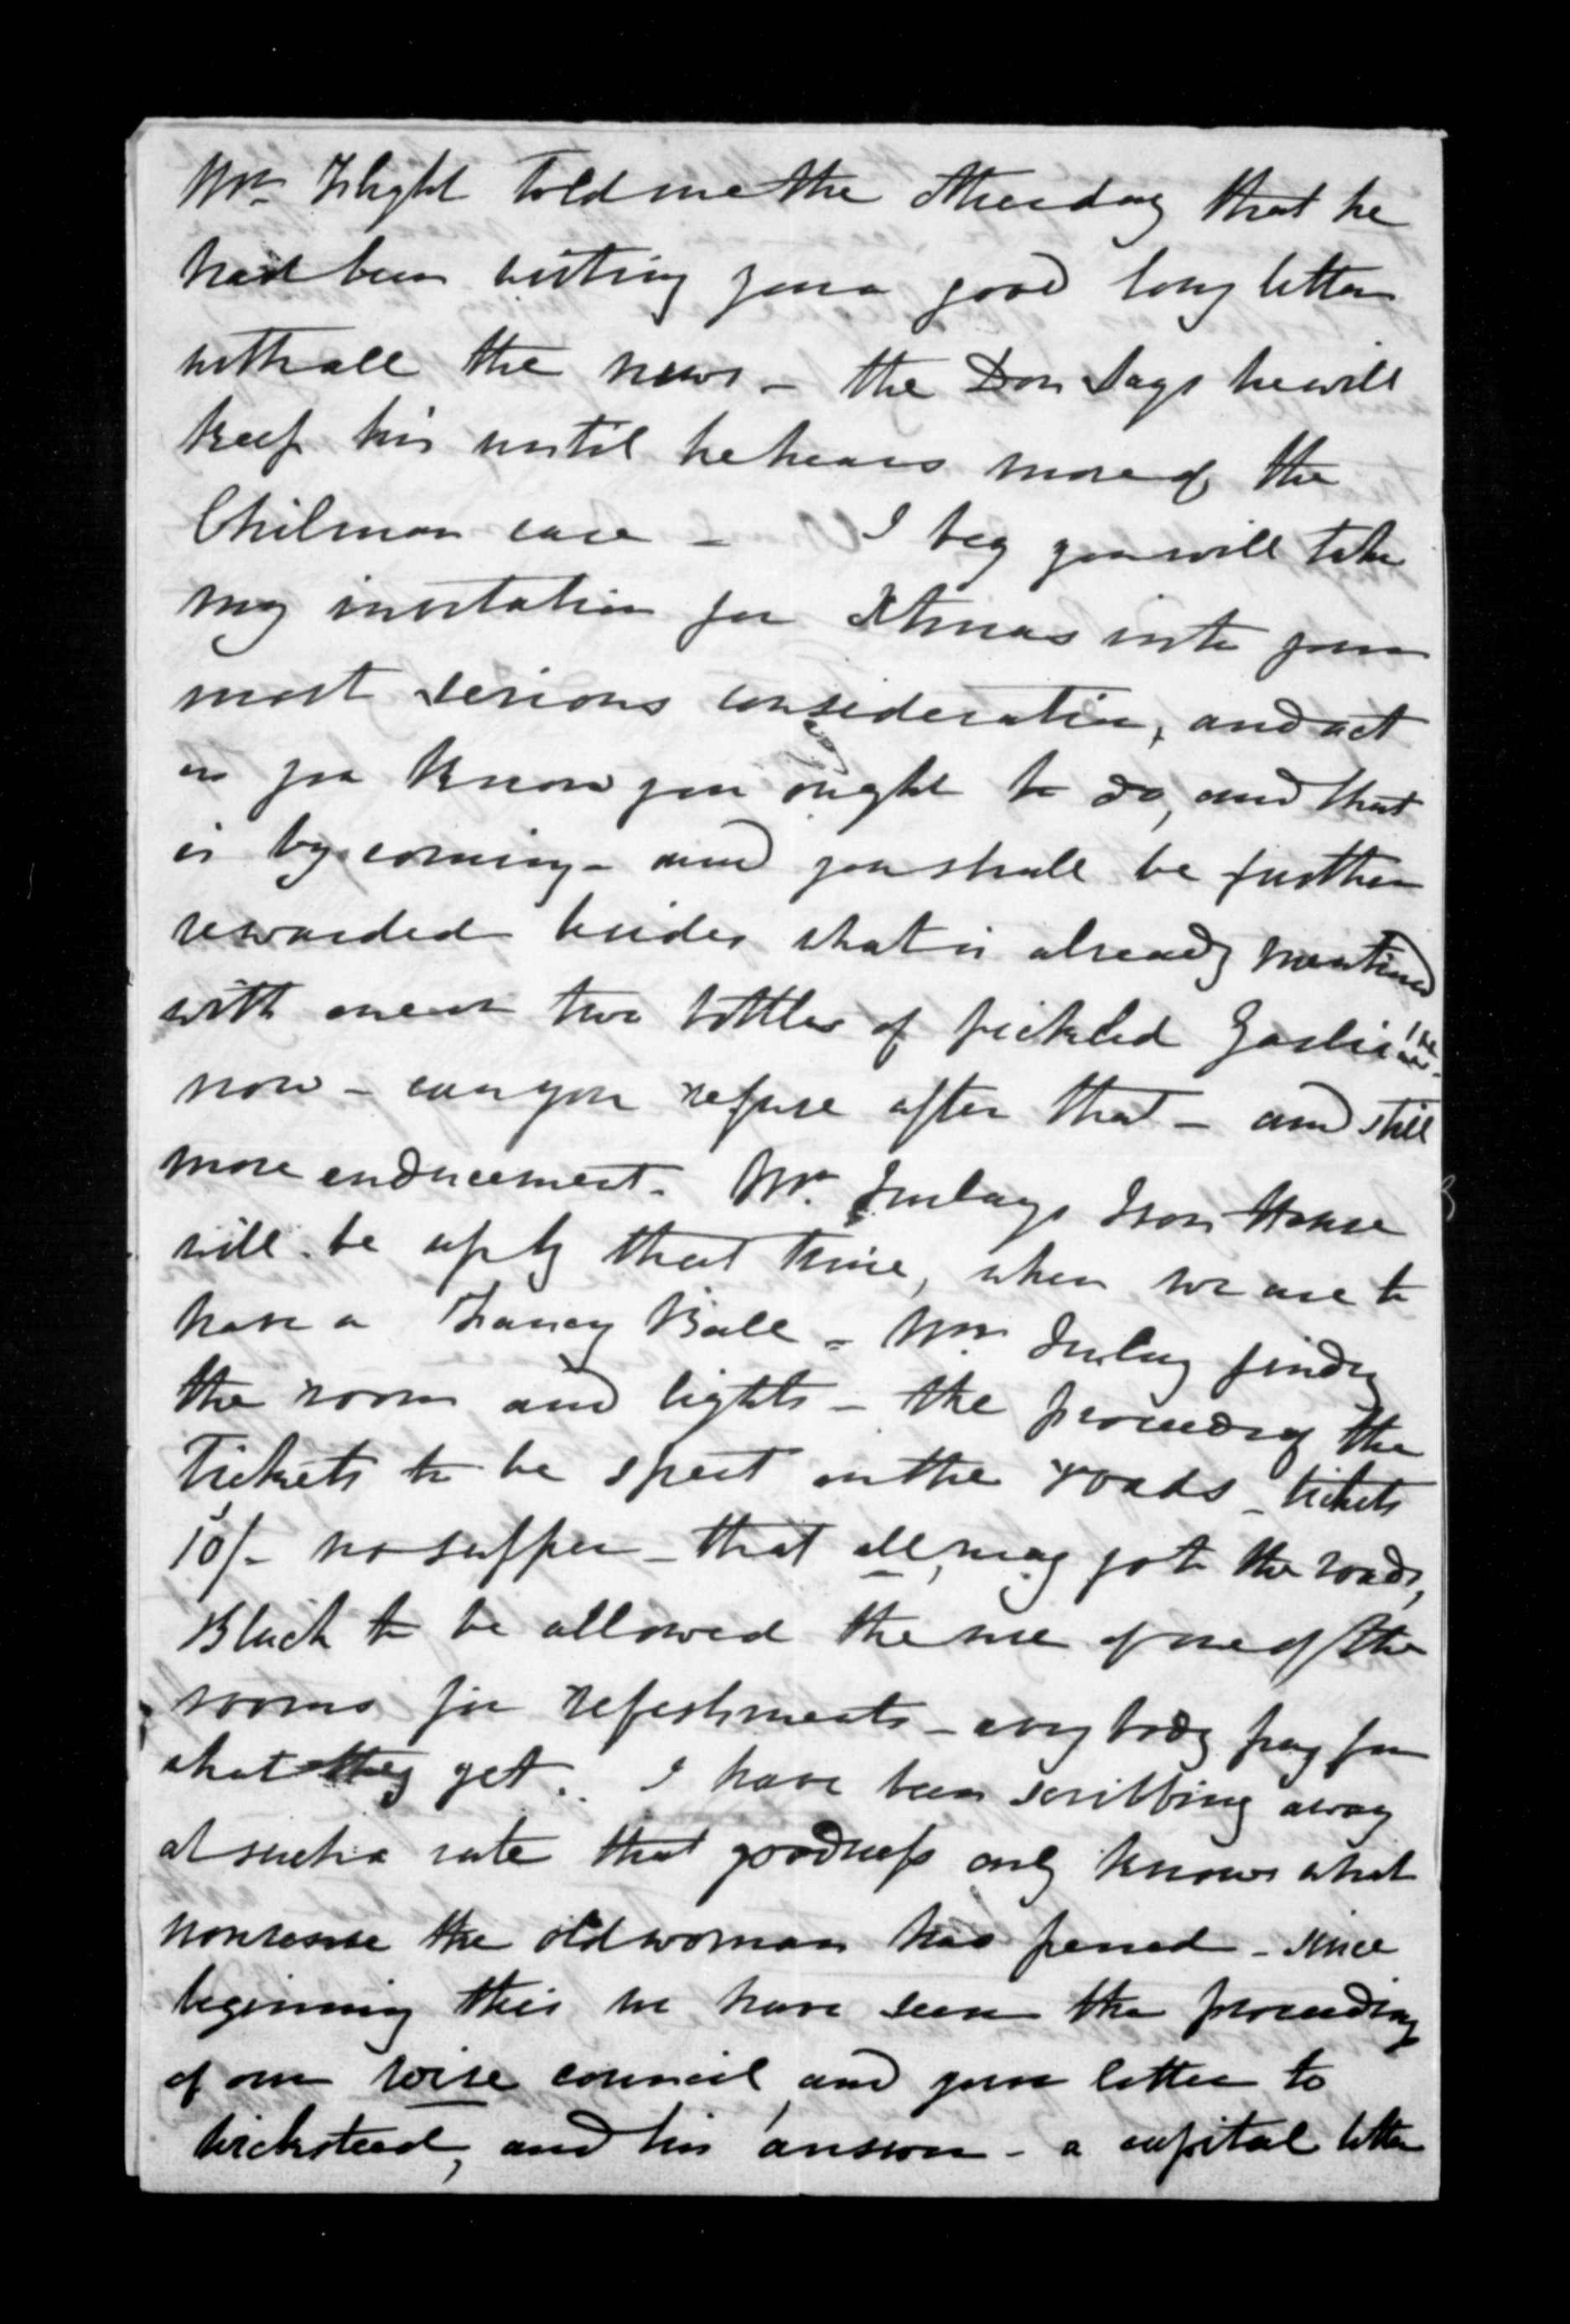 Mr. Flight told me the other day that he
had been writing you a good long letter
with all the news – the Don says he will
keep his until he hears more of the
Chilman case – I beg you will take
my invitation for Xtmas into your
most serious consideration, and act
as you know you ought to do, and that
is by coming – and you shall be further
rewarded besides what is already mentioned
with one or two bottles of pickled Garlic
now – can you refuse after that – and still
more enducement. Mr. Imlays Iron House
will be up by that time, when we are to
have a Fancy Ball – Mr. Imlay finding
the room and lights – the proceeds of the
Tickets to be spent on the roads – tickets
10/- no supper – that all, may go to the roads,
Black to be allowed the use of one of the
rooms for refeshments – every body pay for
what they get. I have been scribbing away
at such a rate that goodness only knows what
nonsense the old woman has penned – since
beginning this we have seen the proceedings
of our wise council, and your letter to
Wicksteed, and his answer – a capital letter